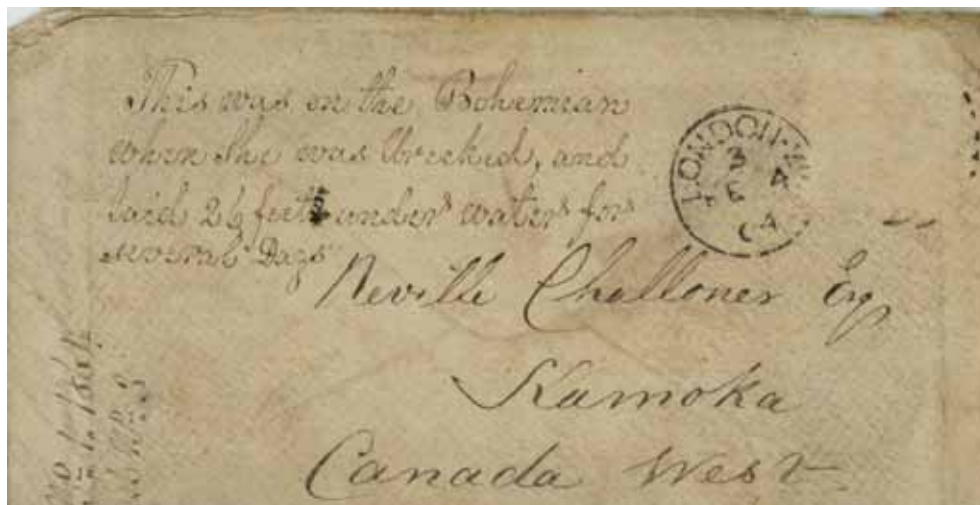 This was on the Bohemian
when she was Wrecked, and
laid 26 feet under water for
several Days
LONDON
3
FE 4
64
Neville Challoner Esq
Kamoka
Canada West